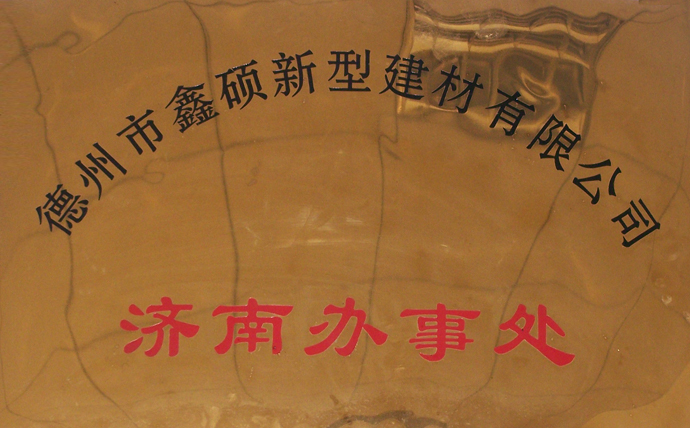 德州市鑫硕新型建材有限公司
济南办事处